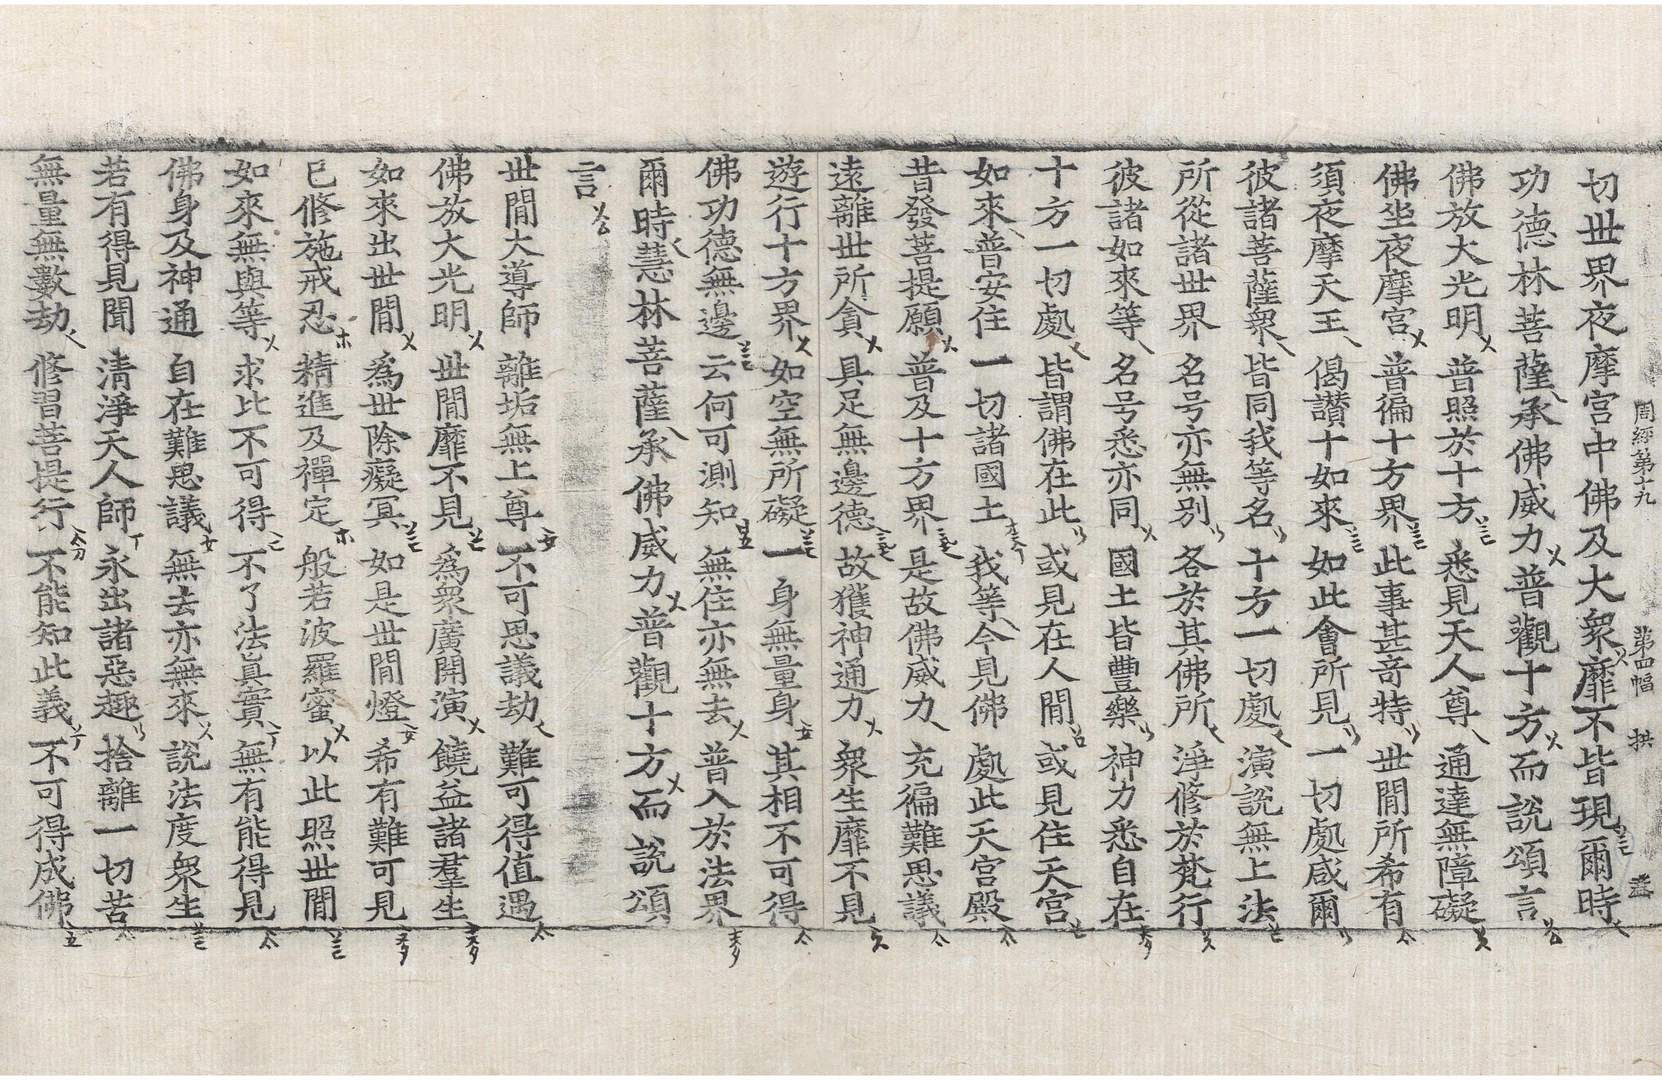 周經第十九 第四幅 拱
切世界夜摩宮中佛及大衆靡不皆現爾時
功德林菩薩承佛威力普觀十方而說頌言
佛放大光明 普照於十方 悉見天人尊 通達無障礙
佛坐夜摩宮 普徧十方界 此事甚奇特 世間所希有
須夜摩天王 偈讃十如來 如此會所見 一切處咸爾
彼諸菩薩衆 皆同我等名 十方一切處 演說無上法
所從諸世界 名号亦無別 各於其佛所 淨修於梵行
彼諸如來等 名号悉亦同 國土皆豐樂 神力悉自在
十方一切處 皆謂佛在此 或見在人間 或見住天宮
如來普安住 一切諸國土 我等今見佛 處此天宮殿
昔發菩提願 普及十方界 是故佛威力 充徧難思議
遠離世所貪 具足無邊德 故獲神通力 衆生靡不見
遊行十方界 如空無所礙 一身無量身 其相不可得
佛功德無邊 云何可測知 無住亦無去 普入於法界
爾時慧林菩薩承佛威力普觀十方而說頌
言
世間大導師 離垢無上尊 不可思議劫 難可得値遇
佛放大光明 世間靡不見 爲衆廣開演 饒益諸羣生
如來出世間 爲世除癡冥 如是世間燈 希有難可見
已修施戒忍 精進及禪定 般若波羅蜜 以此照世間
如來無與等 求比不可得 不了法眞實 無有能得見
佛身及神通 自在難思議 無去亦無來 說法度衆生
若有得見聞 清淨天人師 永出諸惡趣 捨離一切苦
無量無數劫 修習菩提行 不能知此義 不可得成佛